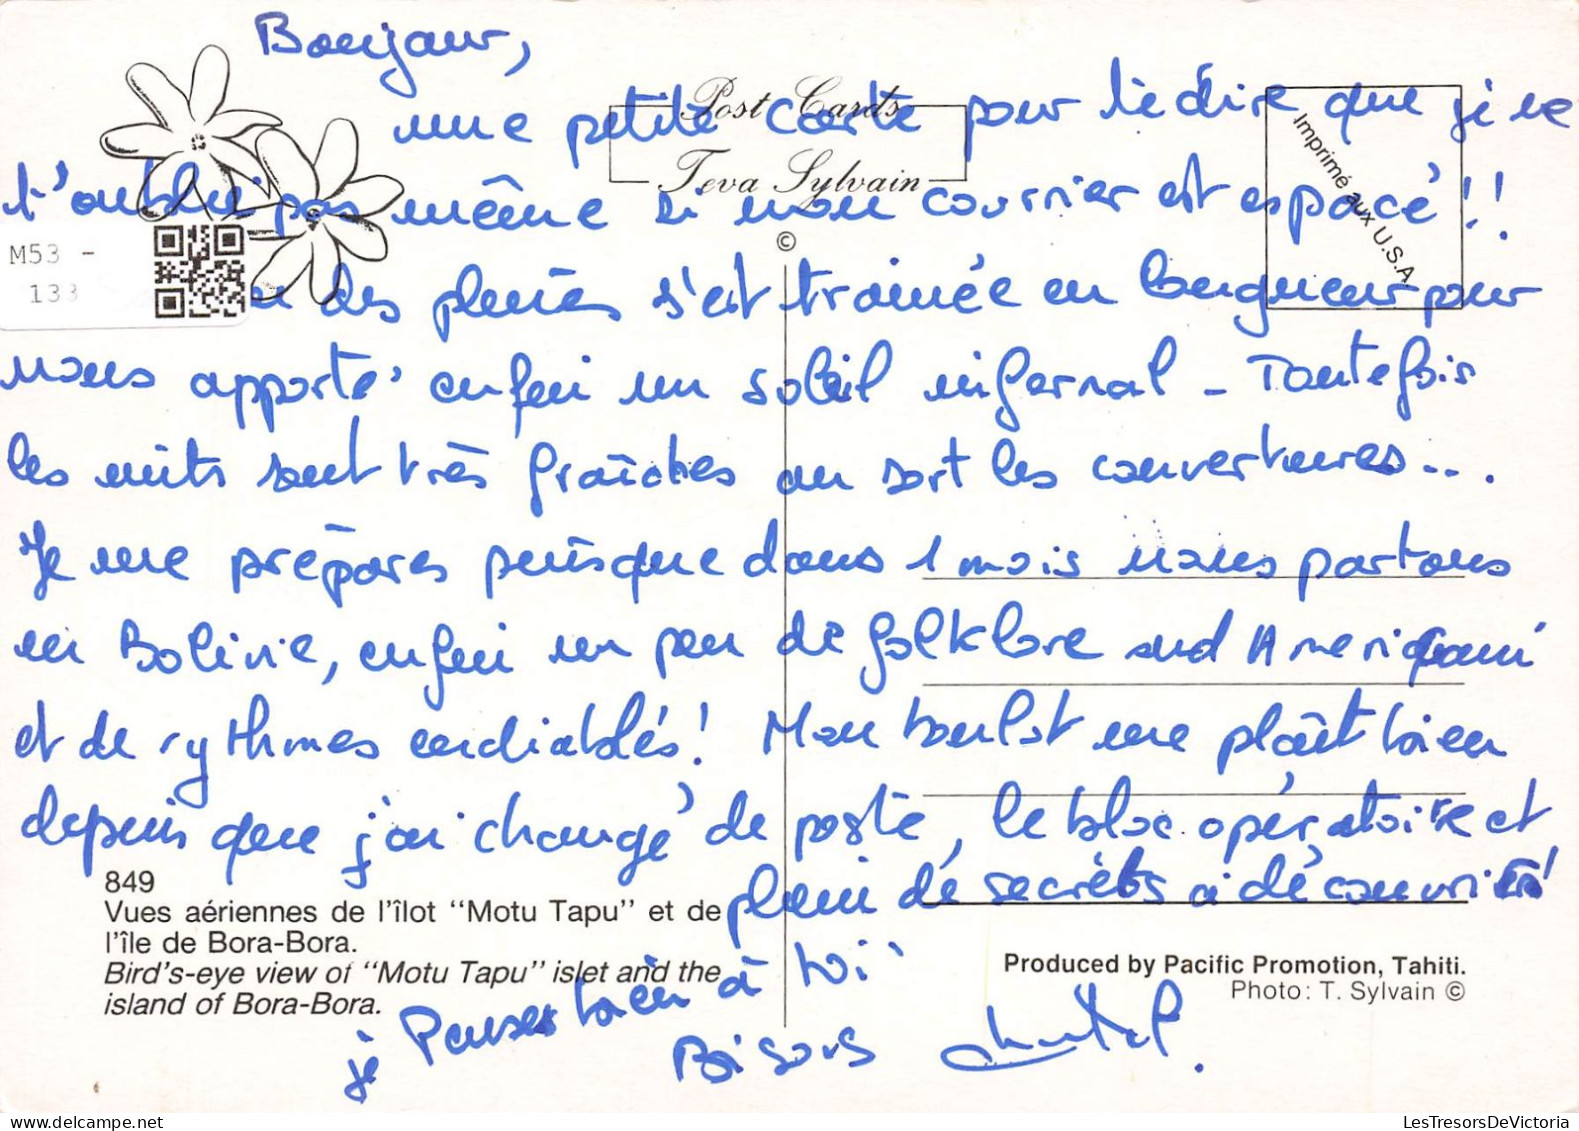 Bonjour,
Post Cards
une petite carte pour te dire que je ne
Teva Sylvain
Imprimé aux U.S.A.
t'oublie pas même si mon courrier est espacé !!
©
M53 -
133
des pluies s'est trainée en longueur pour
nous apporté enfin un soleil infernal - Toutefois
les nuits sont très fraîches on sort les couvertures...
Je me prépares puisque dans 1 mois nous partons
en Bolivie, enfin un peu de folklore sud Americain
et de rythmes endiablés! Mon boulot me plaît bien
depuis que j'ai changé de poste, le bloc opératoire et
plein de secrèts a découvrir !
849
Vues aériennes de l'îlot "Motu Tapu" et de
l'île de Bora-Bora.
Bird's-eye view of "Motu Tapu" islet and the
island of Bora-Bora.
Produced by Pacific Promotion, Tahiti.
Photo: T. Sylvain ©
je Penses bien à toi
Bisous Chantal.
LesTresorsDeVictoria